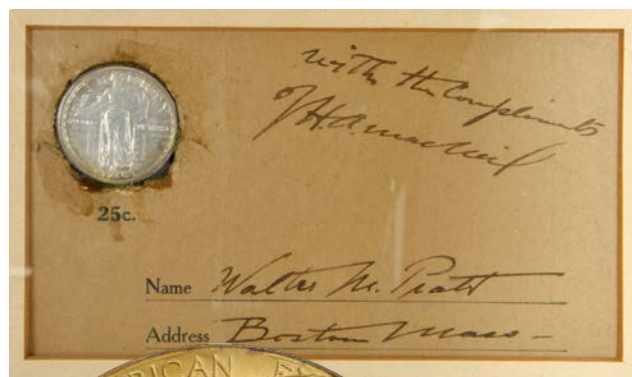 with the Compliments
of H.A. MacNeil
25c.
Name Walter M. Pratt
Address Boston Mass-
RICAN EX